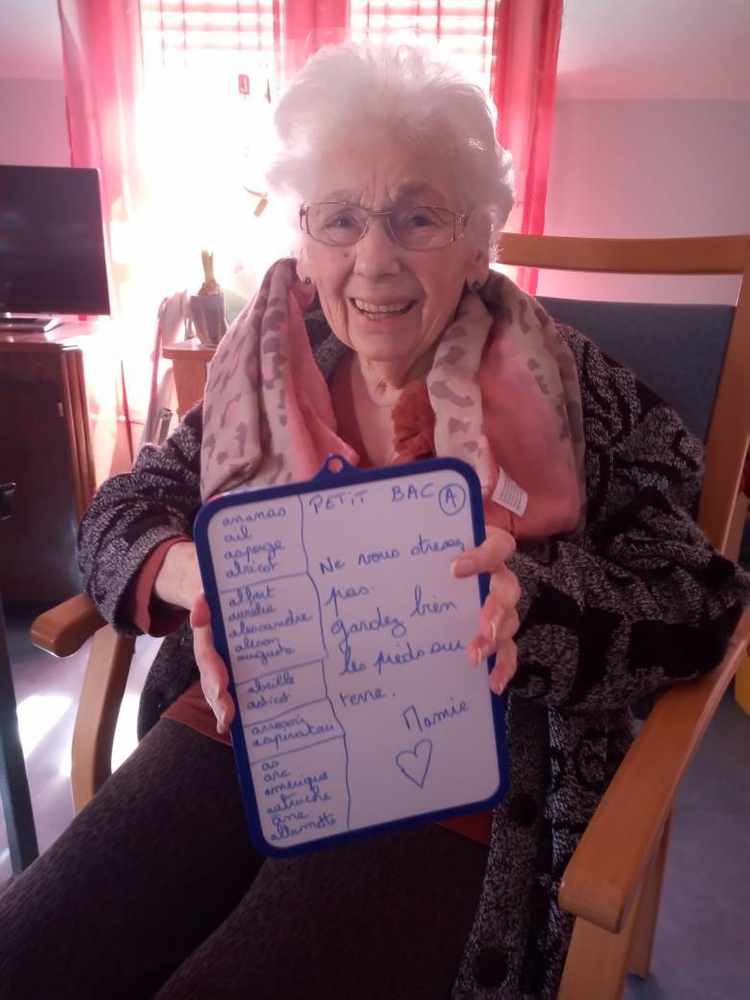 PETIT BAC A
ananas
ail
asperge
abricot
albert
aurélie
alessandre
alison
auguste
abeille
asticot
arrosoir
aspirateur
as
arc
amérique
autruche
âne
allumette
Ne vous stressez
pas.
gardez bien
les pieds sur
terre.
Mamie